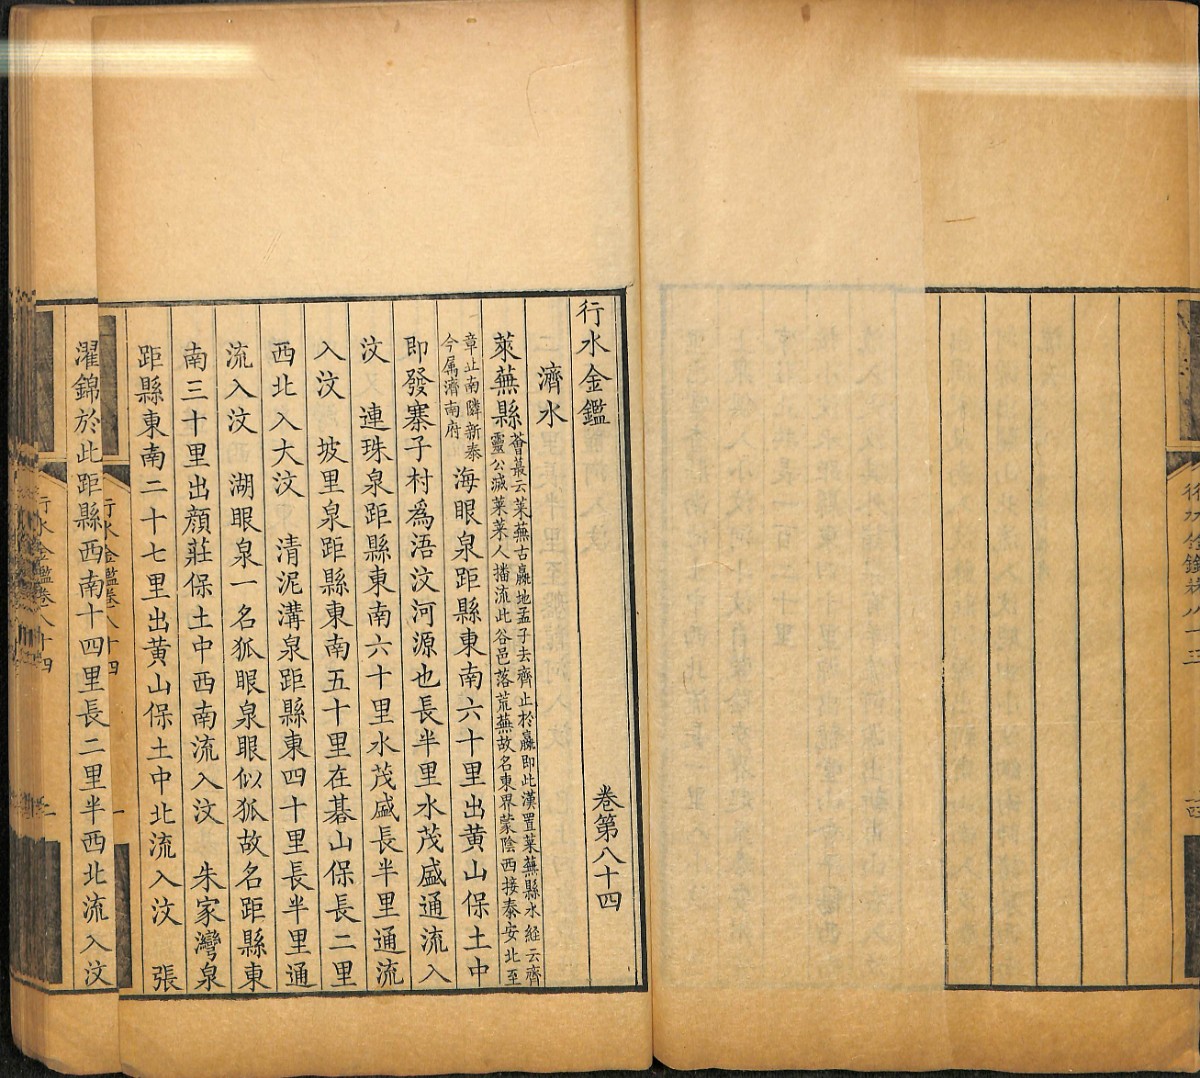 行水金鑑 卷第八十四
濟水
萊蕪縣 薈蕞云萊蕪古嬴地孟子去齊止於嬴即此漢置萊蕪縣水經云齊
靈公滅萊萊人播流此谷邑落荒蕪故名東界蒙陰西接泰安北至
章止南隣新泰
今属濟南府
海眼泉距縣東南六十里出黄山保土中
即發寨子村爲浯汶河源也長半里水茂盛通流入
汶 連珠泉距縣東南六十里水茂盛長半里通流
入汶 坡里泉距縣東南五十里在碁山保長二里
西北入大汶 清泥溝泉距縣東四十里長半里通
流入汶 湖眼泉一名狐眼泉眼似狐故名距縣東
南三十里出顔莊保土中西南流入汶 朱家灣泉
距縣東南二十七里出黄山保土中北流入汶 張
濯錦於此距縣西南十四里長二里半西北流入汶
行水金鑑卷八十四 一
行水金鑑卷八十四 二